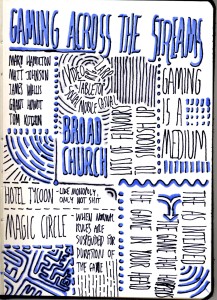 GAMING ACROSS THE STREAMS
MARY HAMILTON
MATT JOHNSON
JAMES WALLIS
GRANT HOWITT
TOM
VIDEO
TABLETOP
BROAD
CHURCH
LOTS OF FLAVOURS
TO SMOOSH UP
GAMING
IS A
MEDIUM
HOTEL TYCOON
- LIKE MONOPOLY,
ONLY NOT SHIT
MAGIC CIRCLE
WHEN NORMAL
RULES ARE
SUSPENDED FOR
DURATION OF
THE GAME
THE GAME IN YOUR HEAD
IS INTENDED